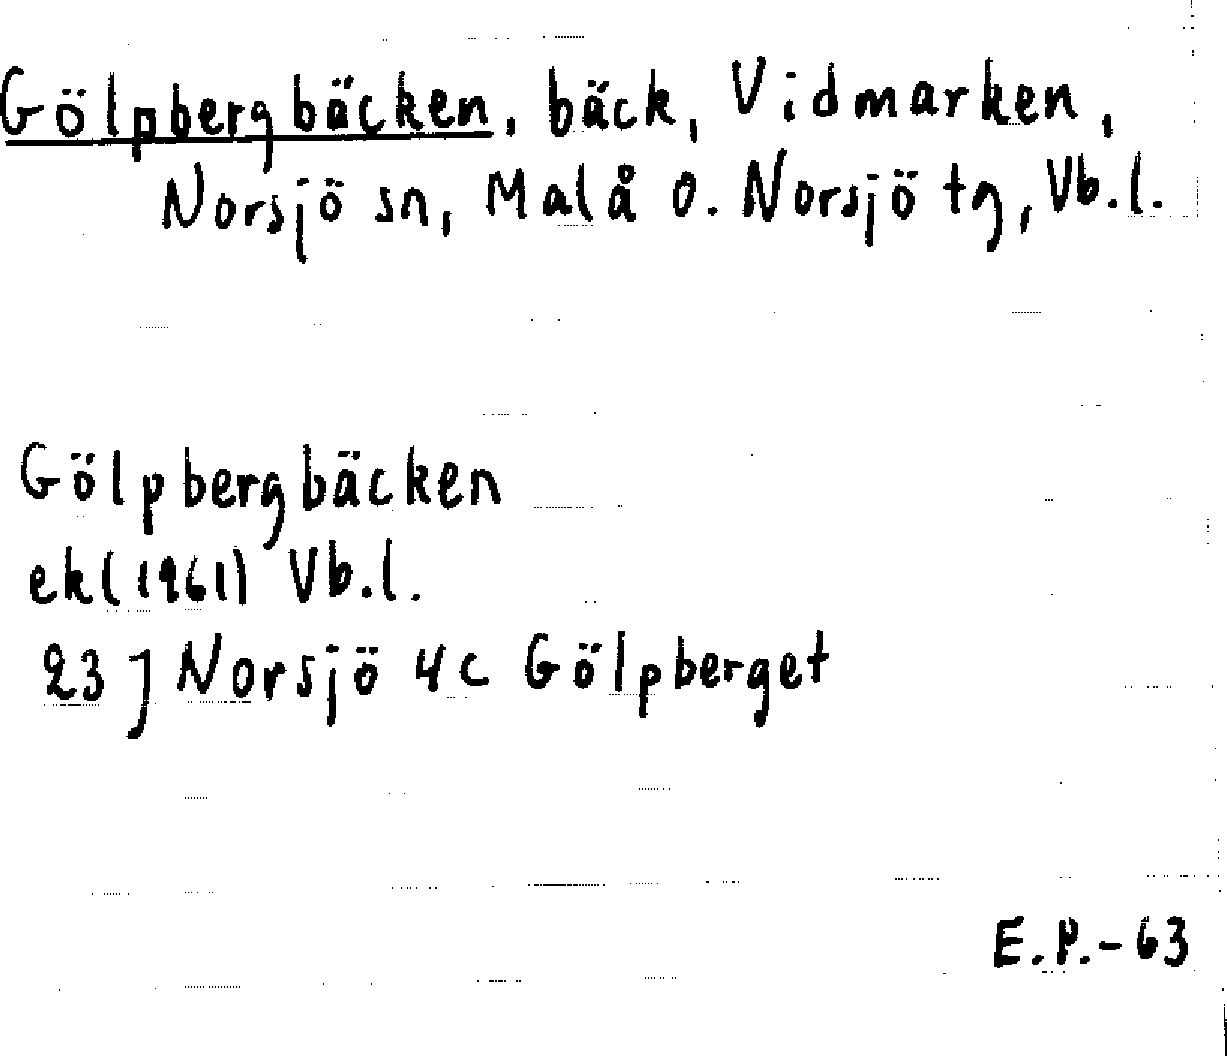 Gölpbergbäcken, bäck, Vidmarken,
Norsjö sn, Malå o. Norsjö tg, Vb.l.
Gölpbergbäcken
ek(1961) Vb.l.
23 J Norsjö 4c Gölpberget
E.P.-63